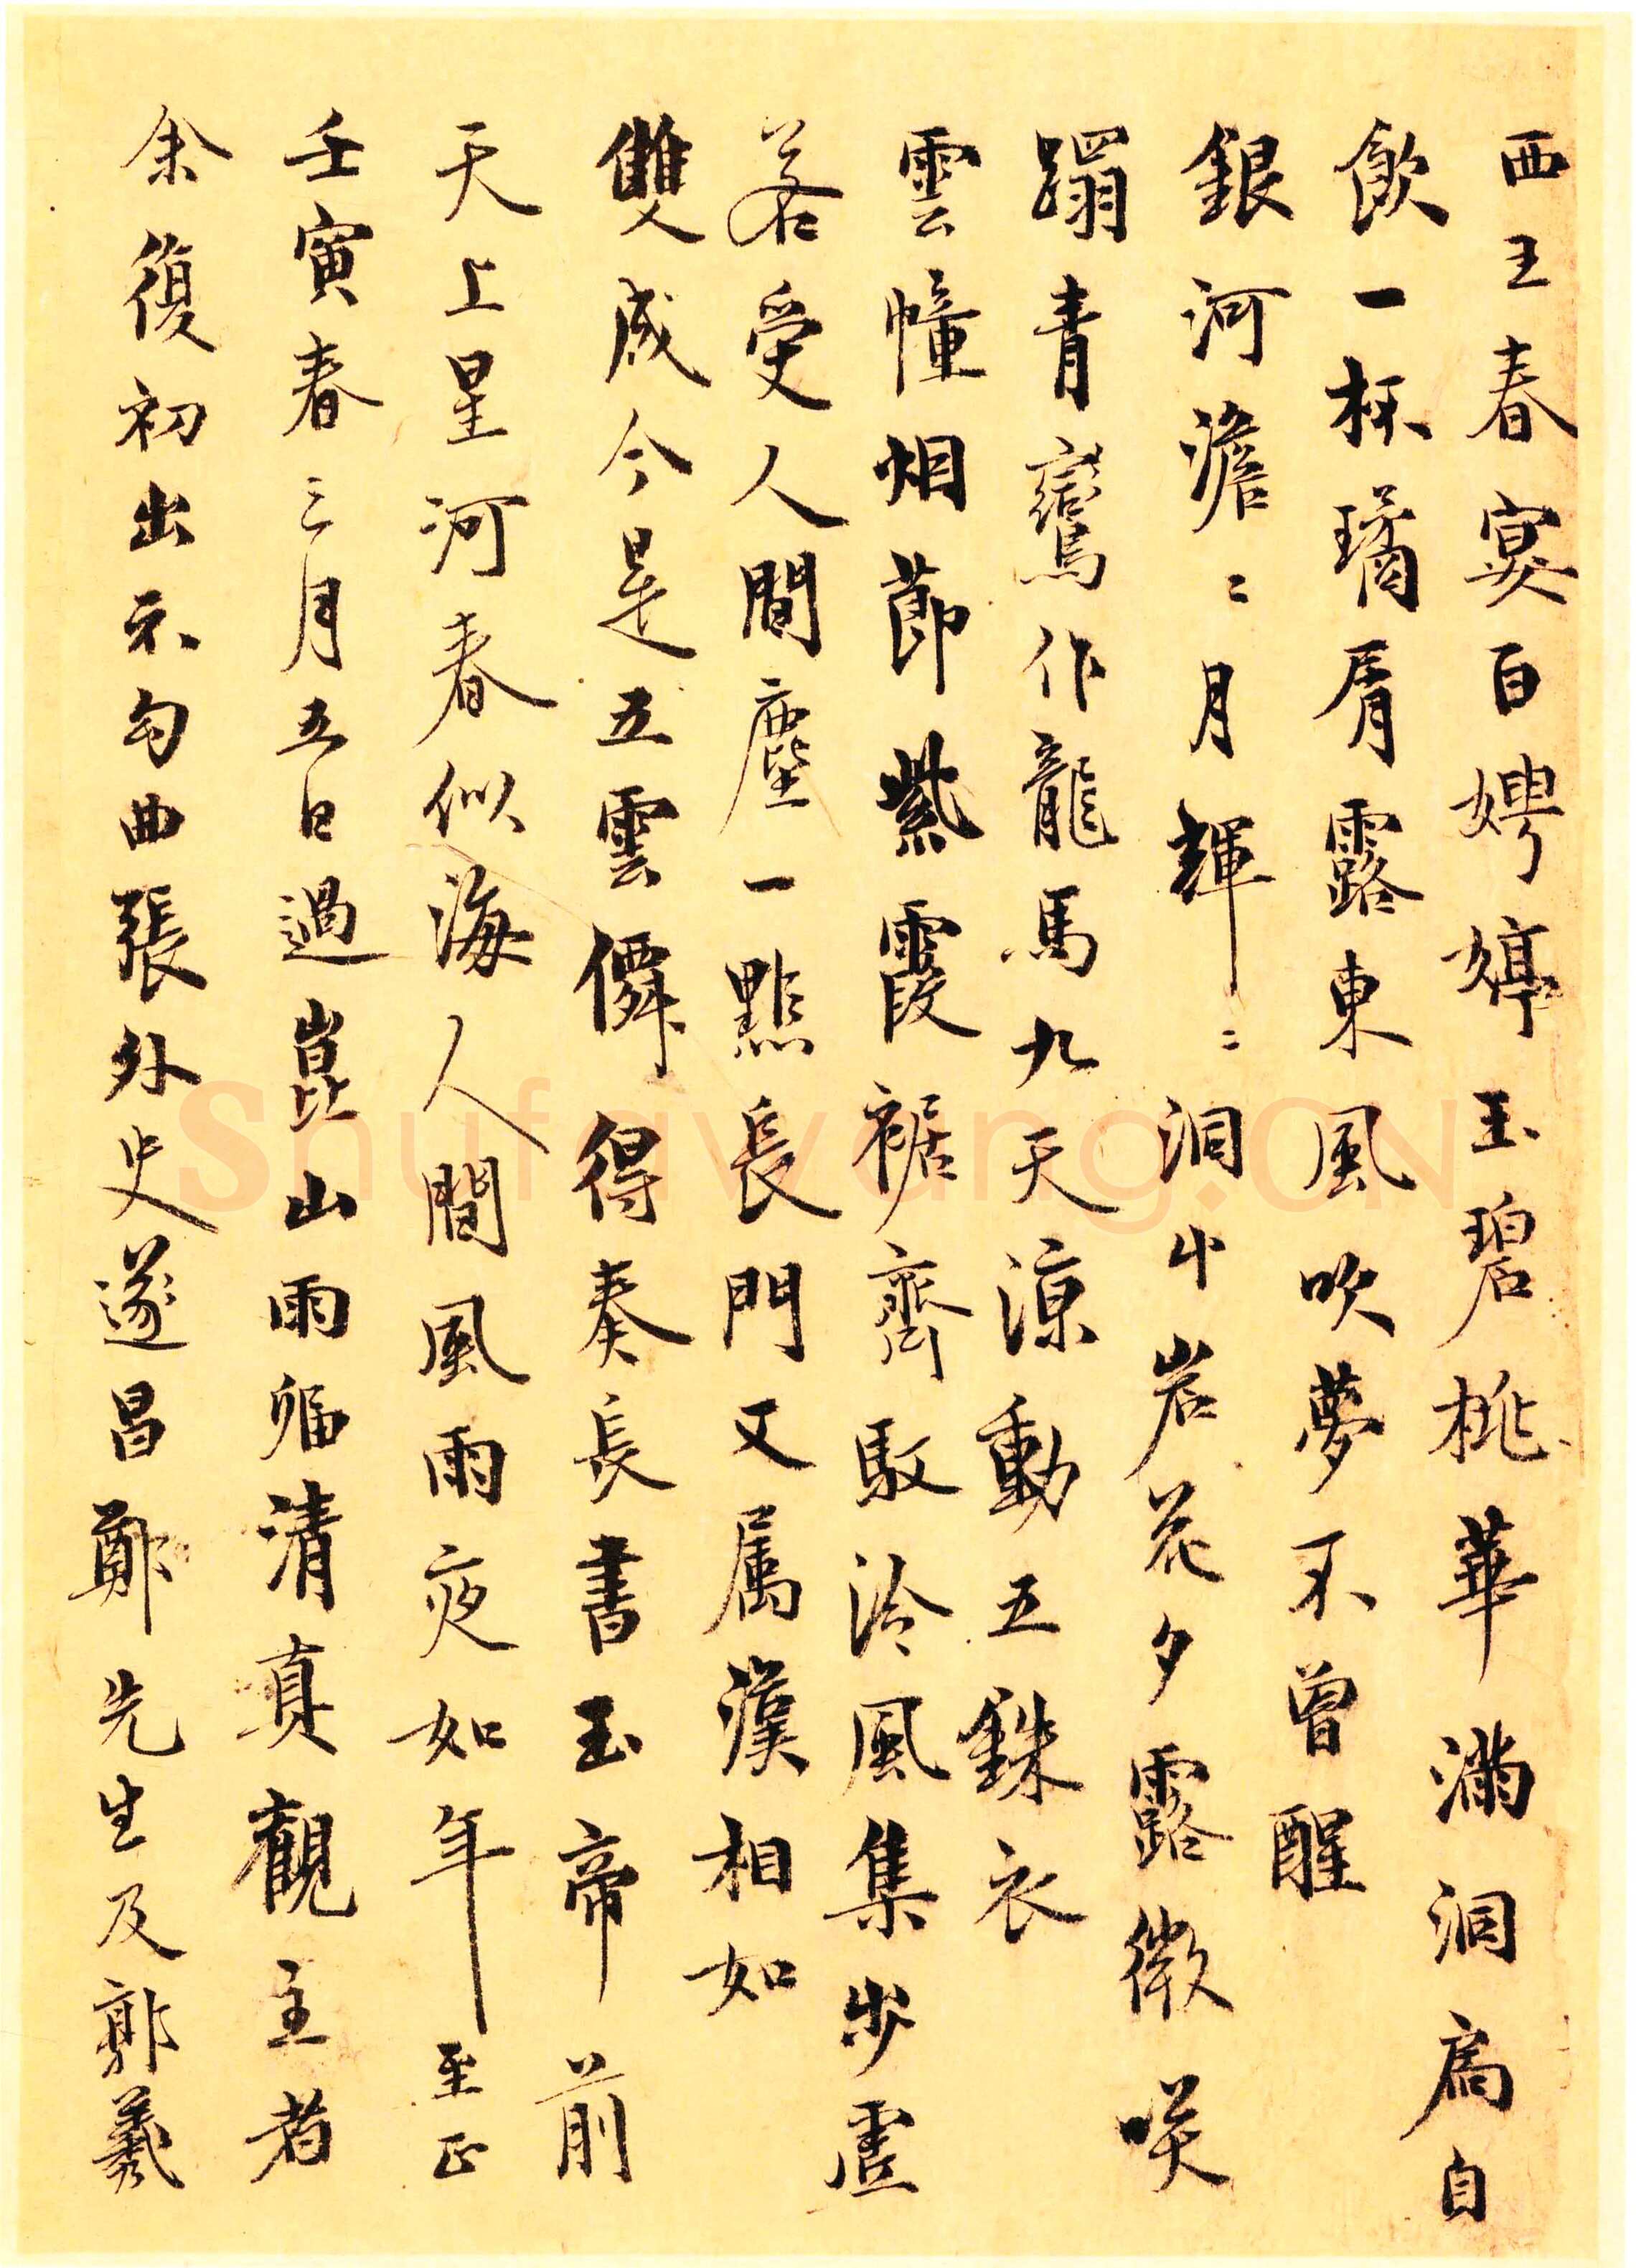 西王春宴百娉婷玉碧桃華滿洞扃自
飲一杯璚屑露東風吹夢不曾醒
銀河澹〻月輝〻洞中岩花夕露微咲
蹋青鸞作龍馬九天涼動五銖衣
雲幢烟節紫霞裾齊馭泠風集步虛
若受人間塵一點長門又属漢相如
雙成今是五雲僊得奏長書玉帝前
天上星河春似海人間風雨夜如年至正
壬寅春三月五日過崑山雨宿清真觀主者
余復初出示勾曲張外史遂昌鄭先生及郭羲
Shufawang.CN